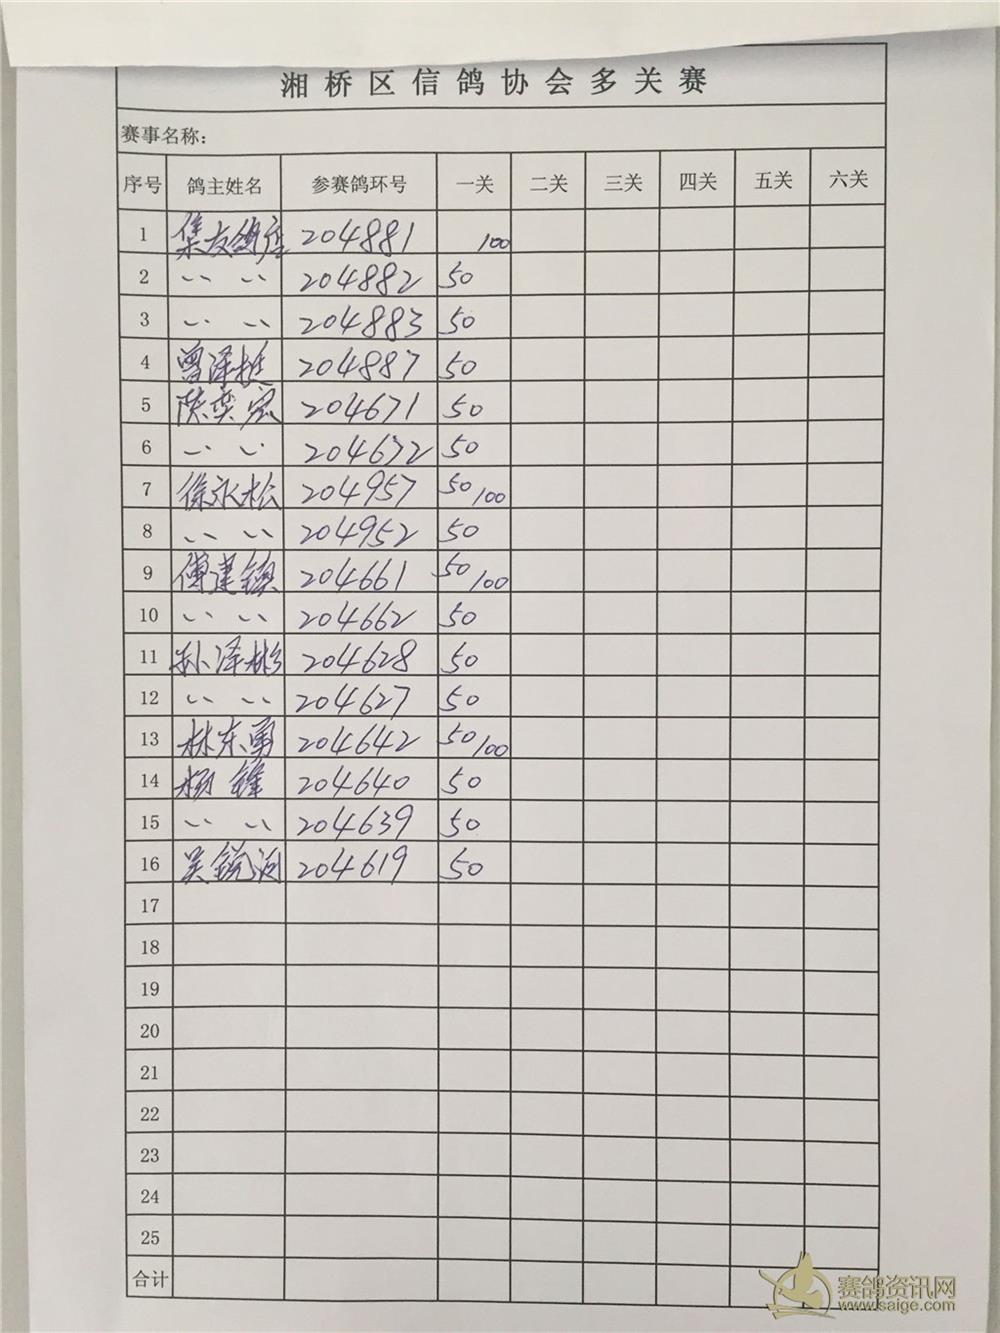 湘桥区信鸽协会多关赛
赛事名称：
序号 鸽主姓名 参赛鸽环号 一关 二关 三关 四关 五关 六关
1 集友鸽庄 204881 100
2 〃 〃 204882 50
3 〃 〃 204883 50
4 曾泽挺 204887 50
5 陈奕宏 204671 50
6 〃 〃 204672 50
7 徐永松 204957 50/100
8 〃 〃 204952 50
9 傅建镇 204661 50/100
10 〃 〃 204662 50
11 孙泽彬 204628 50
12 〃 〃 204627 50
13 林东勇 204642 50/100
14 杨锋 204640 50
15 〃 〃 204639 50
16 吴锐 204619 50
17
18
19
20
21
22
23
24
25
合计
赛鸽资讯网
www.saige.com